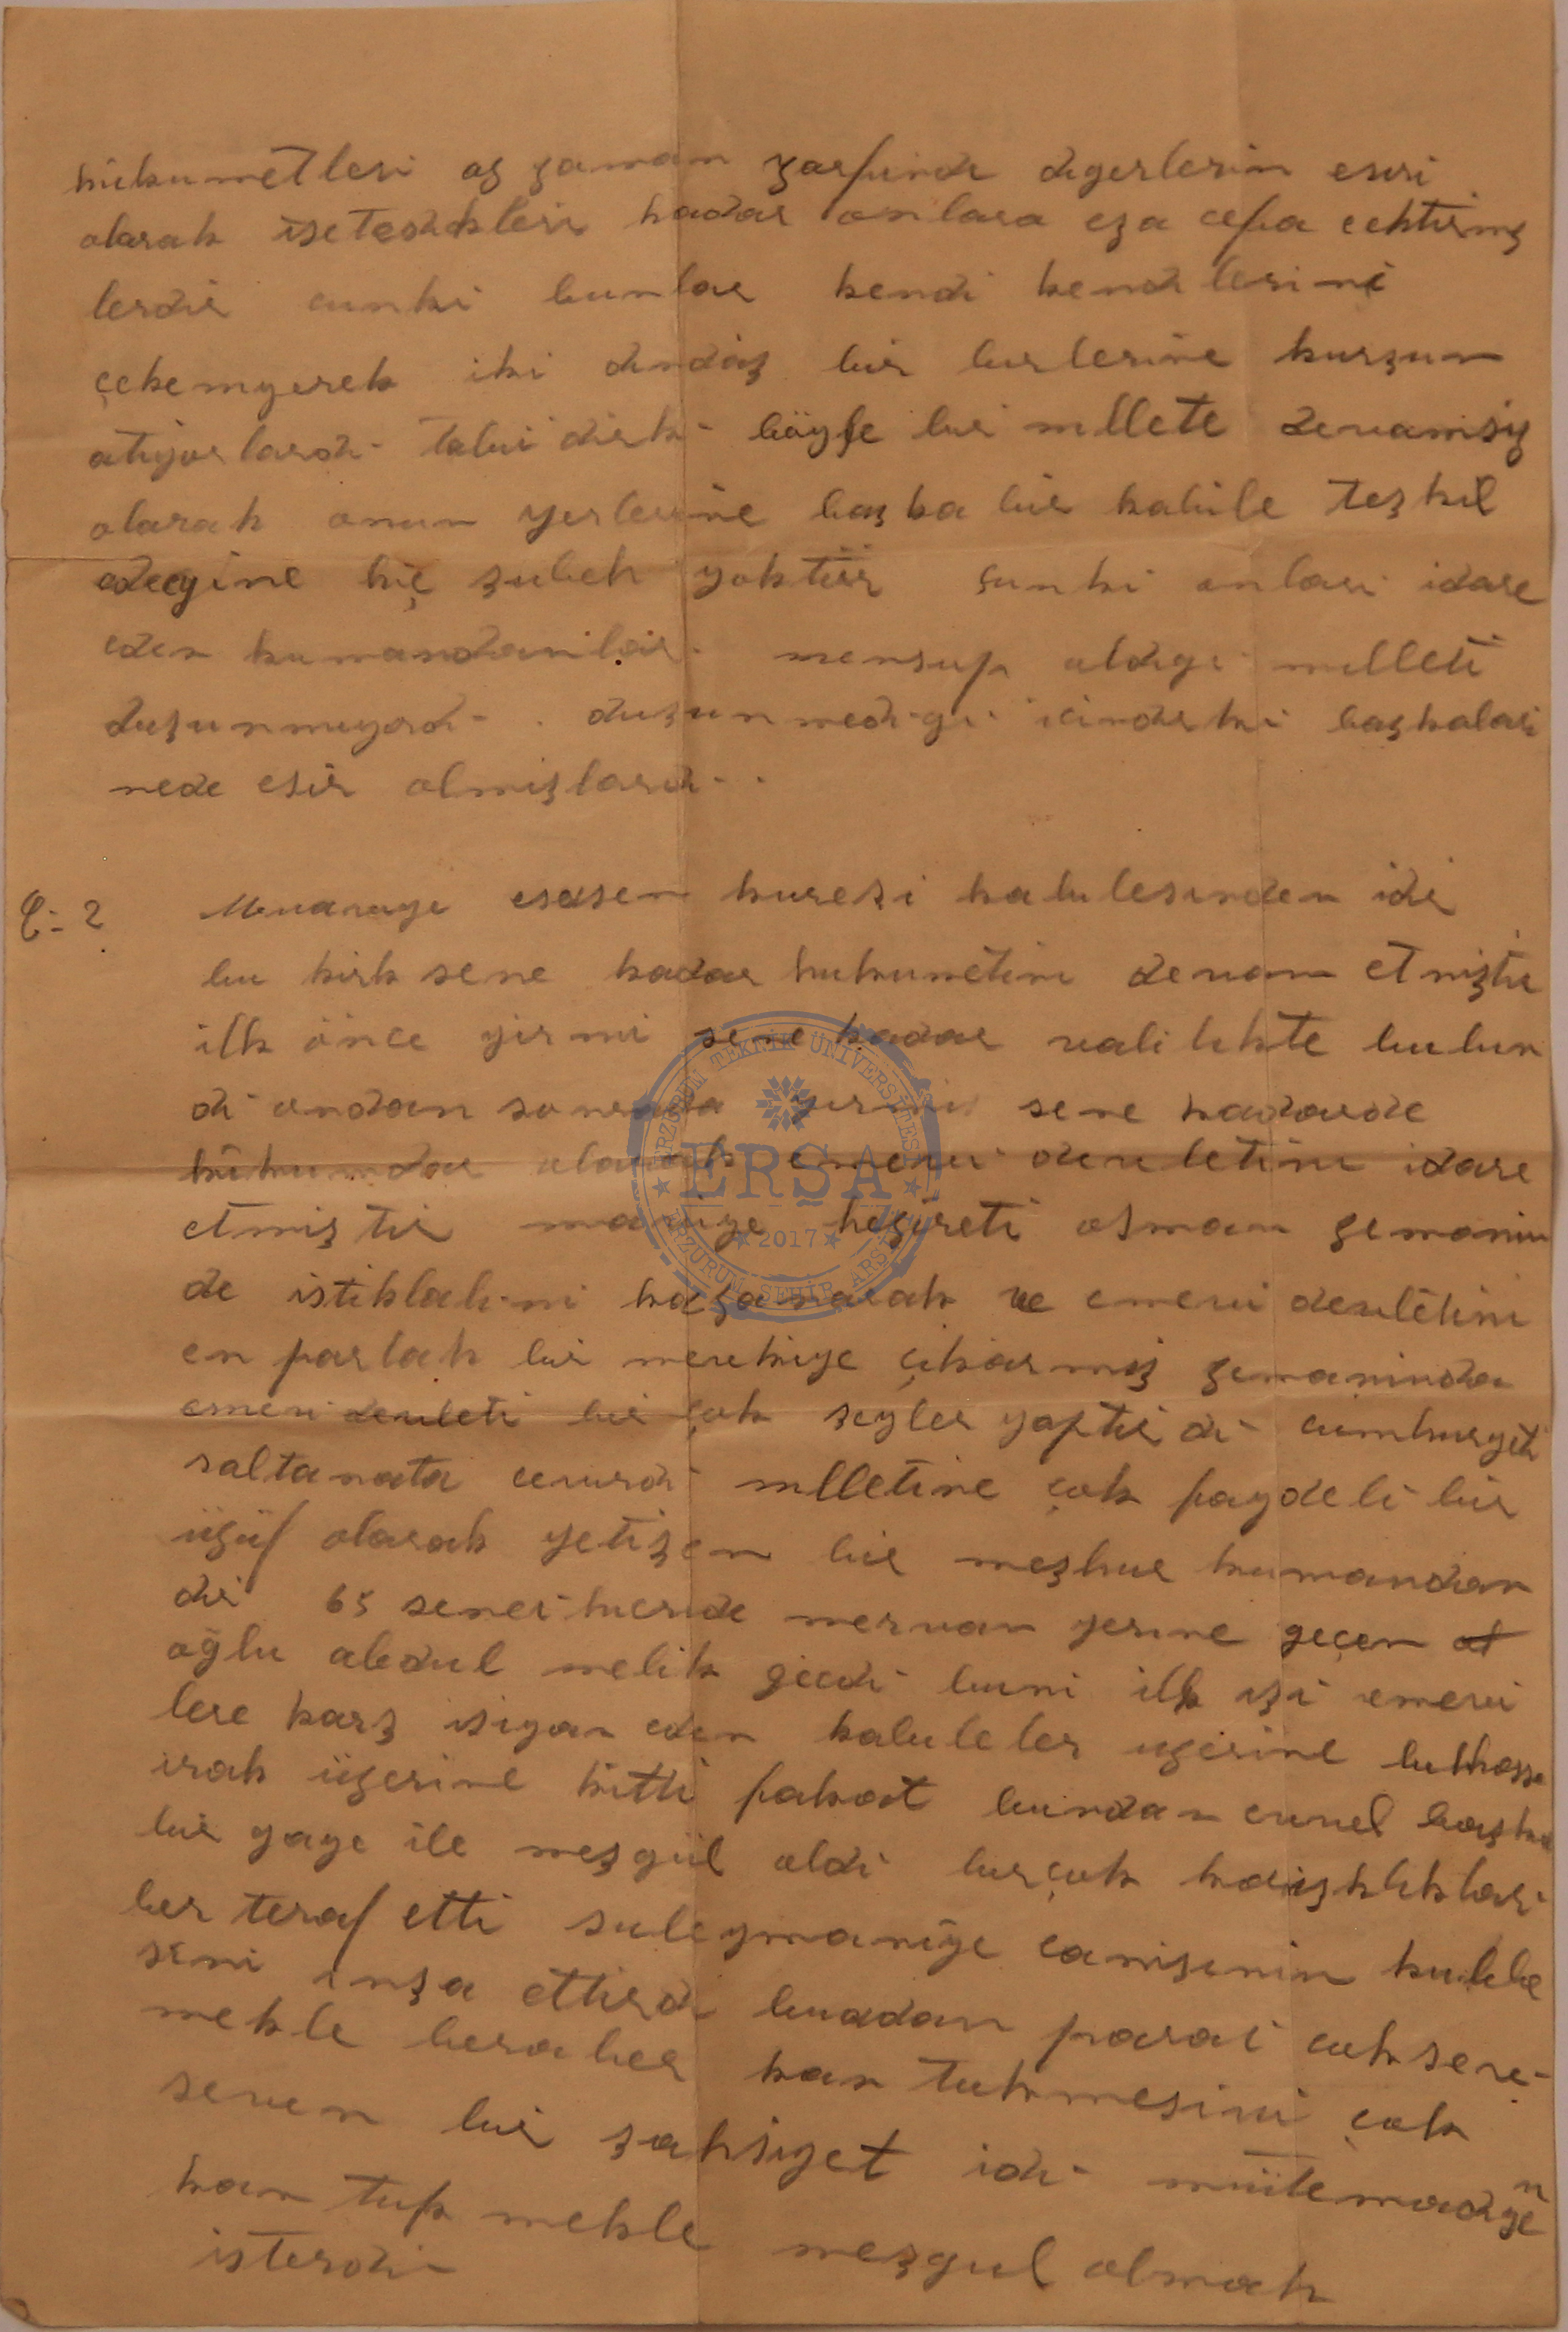 hükumetleri az zaman zarfinda digerlerin esiri
olarak isetedikleri kadar onlara eza cefa cektirmş
lerdir cunki bunlar kendi kendilerini
çekemyerek iki dindaş bir birlerine kurşun
atiyorlardi tabi dirki böyle bir mllete devamsiz
olarak onun yerlerine başka bir kabile teşkil
edeceyine hiç şubeh yoktür çunki onlari idare
eden kumandanilar mensup oldigi milleti
duşunmuyordi. duşunmedigi icindirki başkalari
nede esir olmişlardi.
C= 2 Muaviye esasen kureşi kabilesinden idi
bu kirk sene kadar hukumetini devam etmiştir
ilk önce yirmi sene kadar valilikte bulun
di ondan sonrada yirmi sene kadarde
hükumdar olarak emevi devletini idare
etmiştir maviye hezireti osman zemanin
de istiklalini kazanarak ve emevi devletini
en parlak bir mevkiye çikarmiş zemaninda
emevi devleti bir çok şeyler yaptirdi cümhuryeti
saltanata cevirdi mlletine çok faydeli bir
üzüf olarak yetişen bir meşhur kumandan
dir 65 senei hicride mervan yerine geçen
oğlu abdul melik gecdi buni ilk işi emevi
lere karş isiyan eden kabileler uzerine bilhassa
irak üzerine kitti fakat bundan evvel başka
bir gaye ile meşgül oldi birçok karişiklıklari
ber teraf etti suleymaniye camisinin kubbe
sini inşa ettirdi buadan parai cok seve-
mekle beraber kan tukmesini çok
seven bir şahsiyet idi mütemadiyen
kan tupmekle meşgul olmak
isterdi
ERZURUM TEKNİK ÜNİVERSİTESİ
ERŞA
★ 2017 ★
ERZURUM ŞEHİR ARŞİVİ